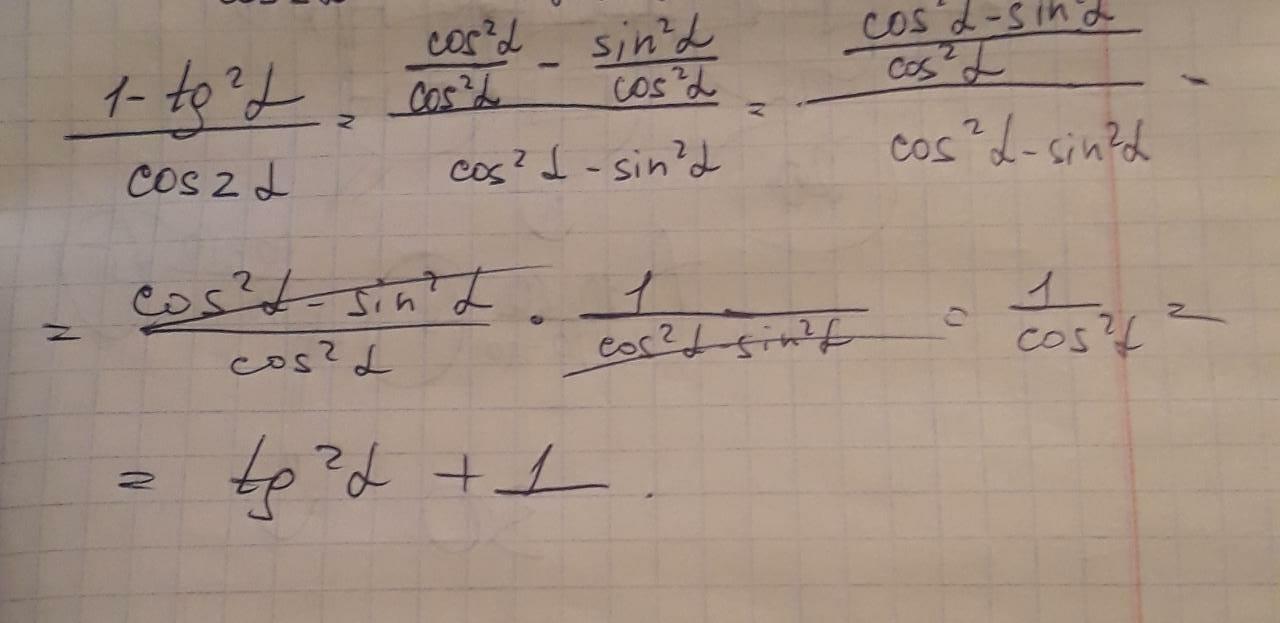 (1 - tg²α)/(cos 2α) = (cos²α/cos²α - sin²α/cos²α)/(cos²α - sin²α) = ((cos²α - sin²α)/cos²α)/(cos²α - sin²α) -
= (cos²α - sin²α)/(cos²α) · 1/(cos²α - sin²α) = 1/(cos²α) =
= tg²α + 1.